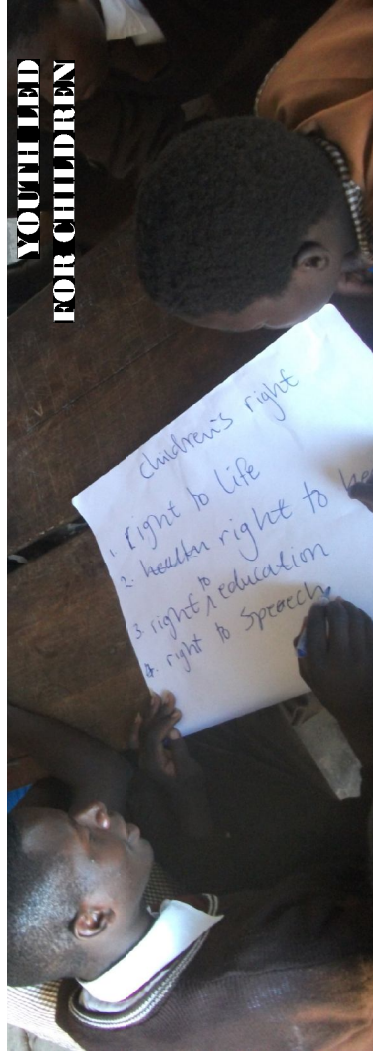 YOUTH LED
FOR CHILDREN
children's right
1. right to life
2. right to
3. right to education
4. right to speech